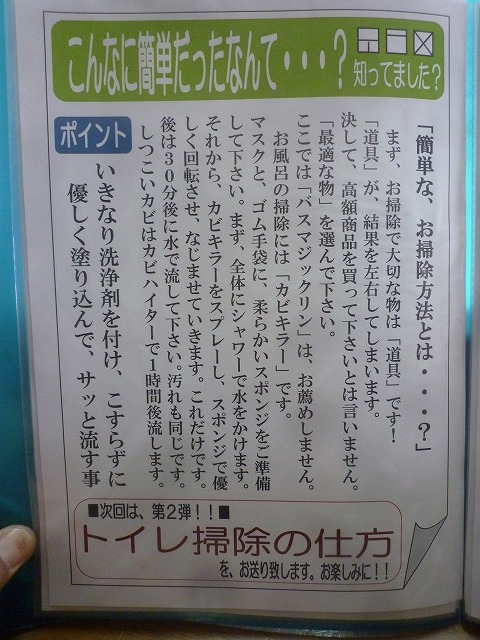 こんなに簡単だったなんて・・・?
知ってました?
「簡単な、お掃除方法とは・・・?」
まず、お掃除で大切な物は「道具」です!
「道具」が、結果を左右してしまいます。
決して、高額商品を買って下さいとは言いません。
「最適な物」を選んで下さい。
ここでは「バスマジックリン」は、お薦めしません。
お風呂の掃除には「カビキラー」です。
マスクと、ゴム手袋に、柔らかいスポンジをご準備
して下さい。まず、全体にシャワーで水をかけます。
それから、カビキラーをスプレーし、スポンジで優
しく回転させ、なじませていきます。これだけです。
後は30分後に水で流して下さい。汚れも同じです。
しつこいカビはカビハイターで1時間後流します。
ポイント
いきなり洗浄剤を付け、こすらずに
優しく塗り込んで、サッと流す事
■次回は、第2弾!!■
トイレ掃除の仕方
を、お送り致します。お楽しみに!!